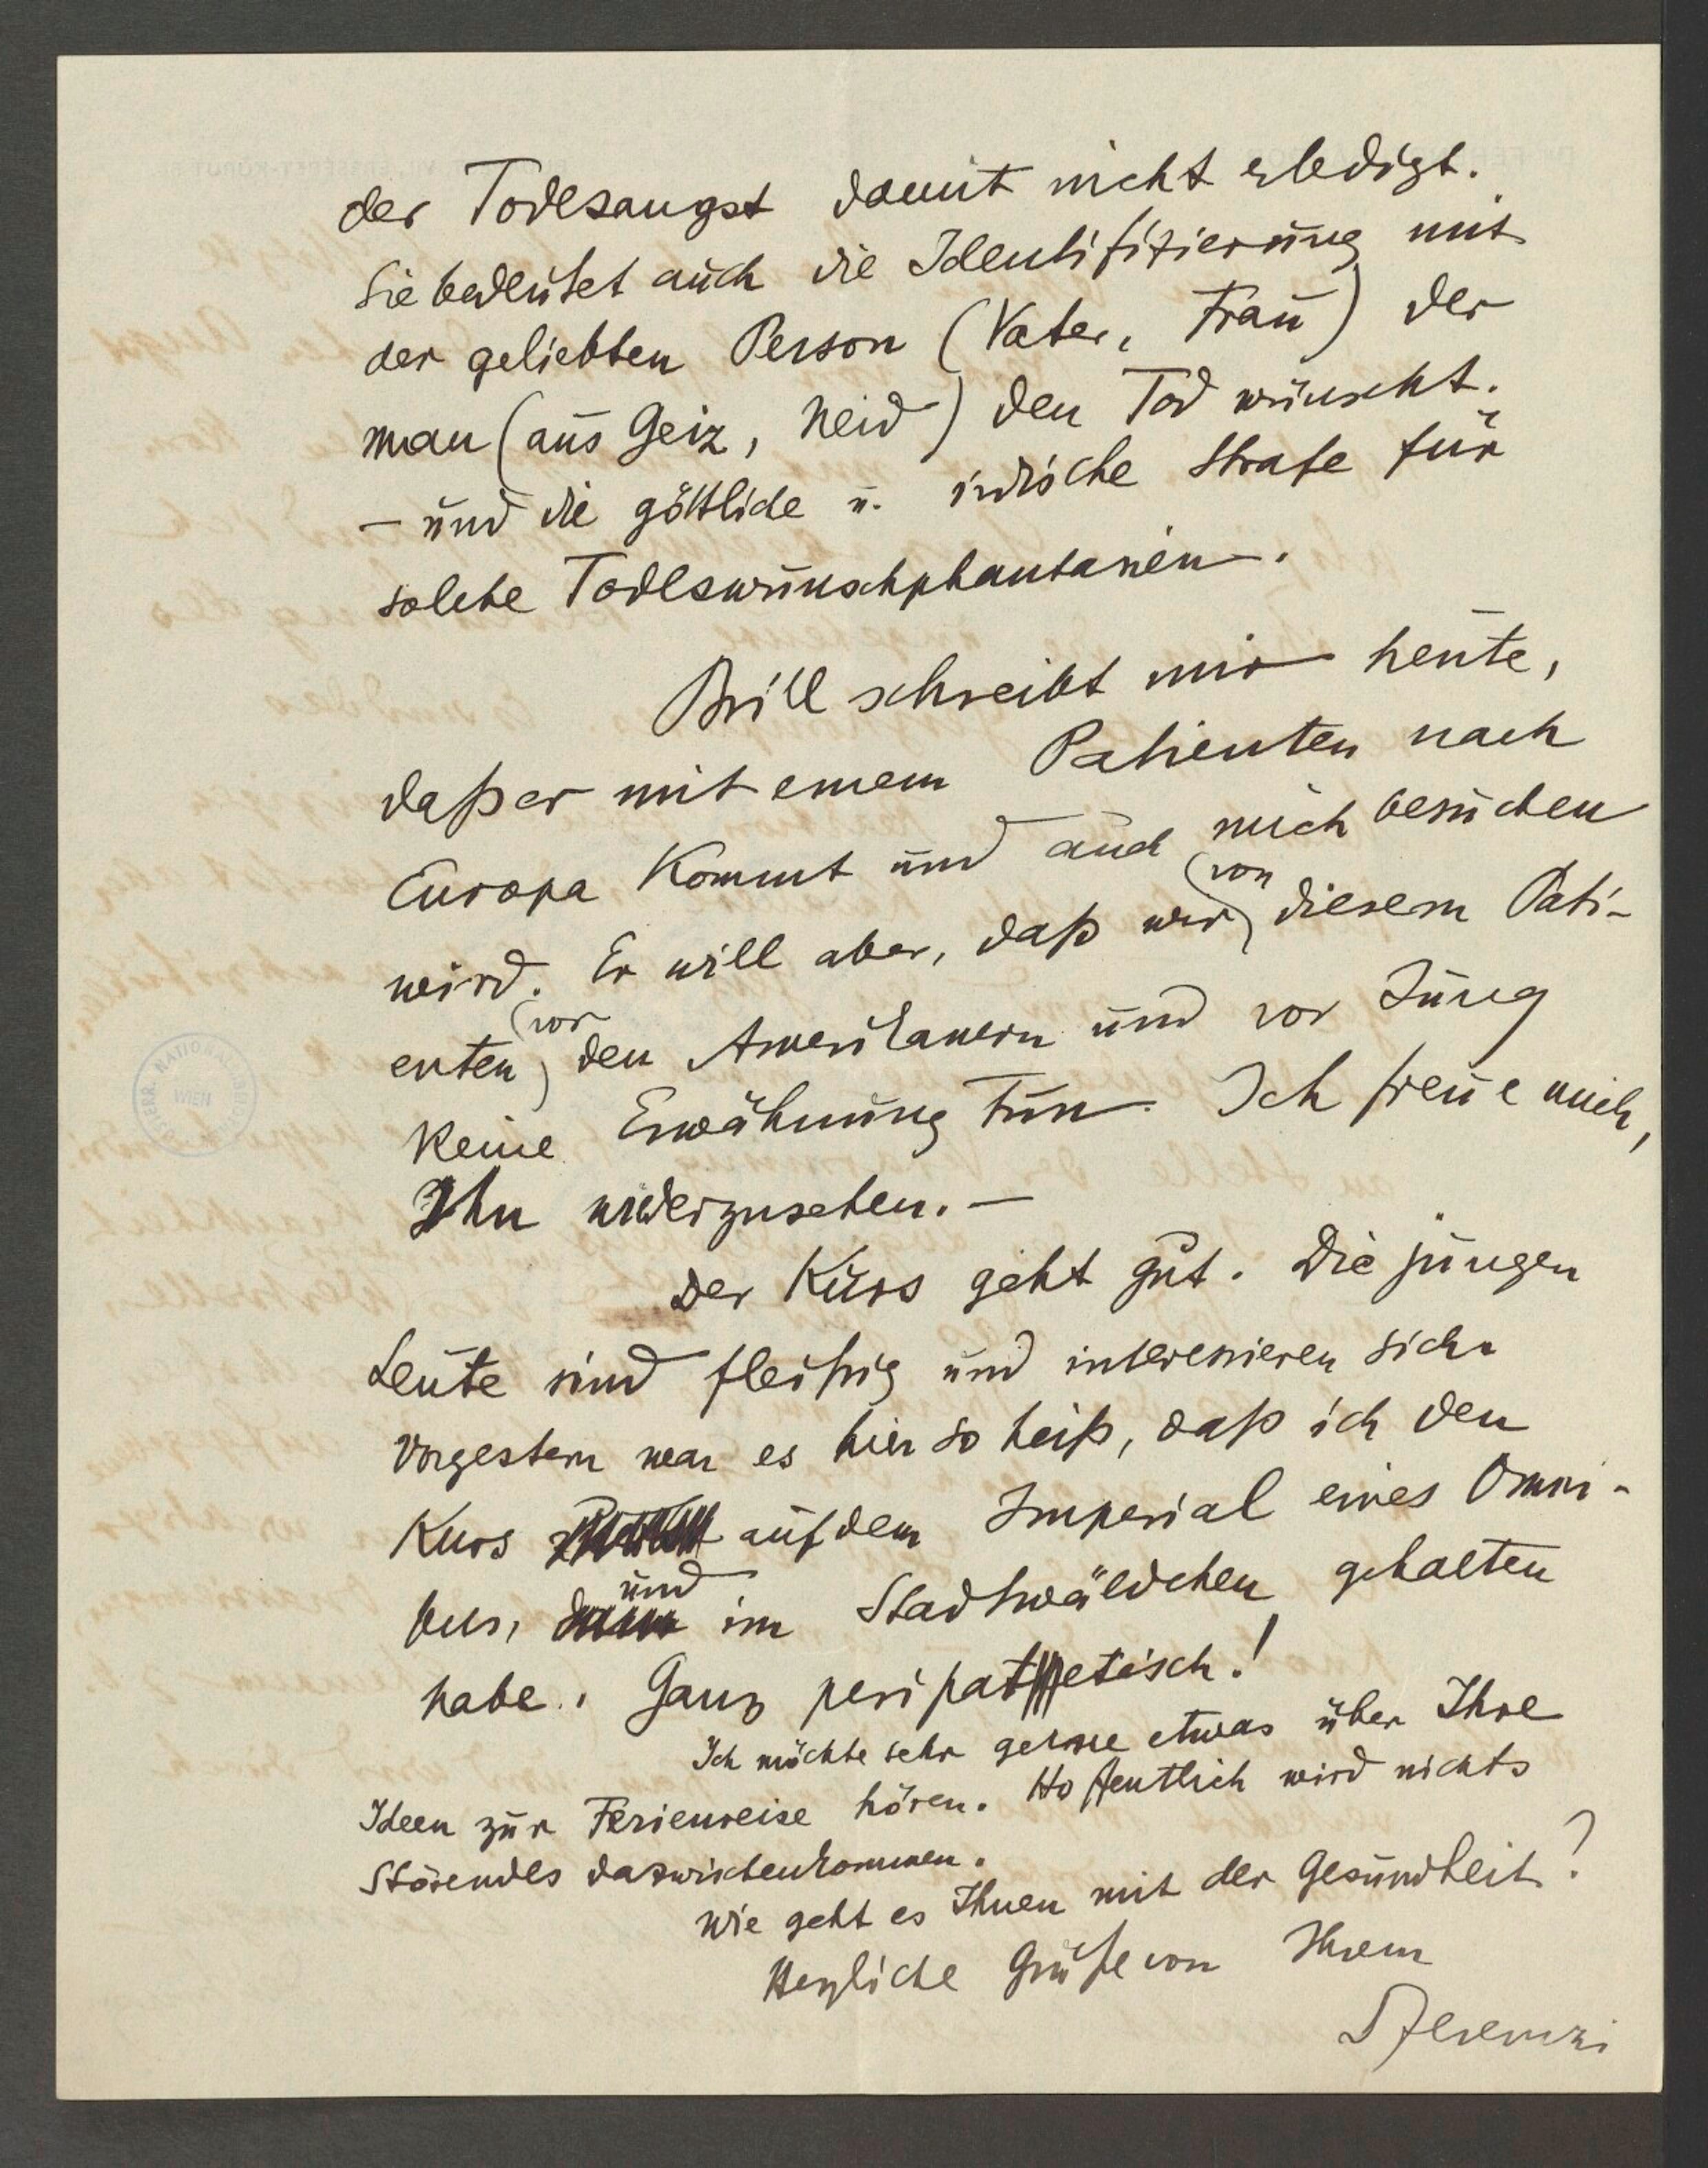 der Todesangst damit nicht erledigt.
Sie bedeutet auch die Identifizierung mit
der geliebten Person (Vater, Frau) der
man (aus Geiz, Neid) den Tod wünscht.
– und die göttliche u. irdische Strafe für
solche Todeswunschphantasien.
Brill schreibt mir heute,
daß er mit einem Patienten nach
Europa kommt und auch mich besuchen
wird. Er will aber, daß wir von diesem Pati-
enten vor den Amerikanern und vor Jung
keine Erwähnung tun. Ich freue mich,
Ihn wiederzusehen. –
Der Kurs geht gut. Die jungen
Leute sind fleißig und interessieren sich.
Vorgestern war es hier so heiß, daß ich den
Kurs auf dem Imperial eines Omni-
bus, und im Stadtwäldchen gehalten
habe. Ganz peripatetisch!
Ich möchte sehr gerne etwas über Ihre
Ideen zur Ferienreise hören. Hoffentlich wird nichts
Störendes dazwischenkommen.
Wie geht es Ihnen mit der Gesundheit?
Herzliche Grüße von Ihrem
SFerenczi
WIEN